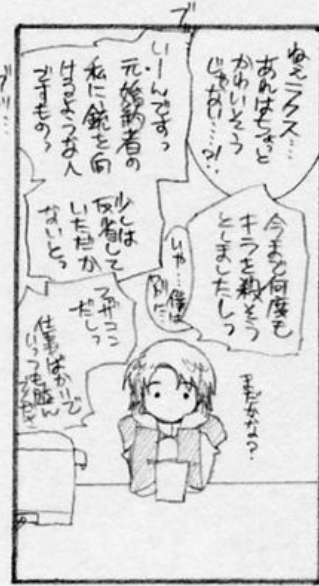 ねえラクス…
あれはちょっと
かわいそう
じゃない…?!
いーんですっ
元婚約者の
私に銃を向
けるような人
ですもの〜
今まで何度も
キラを殺そう
としましたしっ
少しは
反省して
いただか
ないとっ
いや…僕は
別に…
ファザコン
だしっ
仕事ばかりで
いっつも
まだかな?
ブ
ブ
ツ…